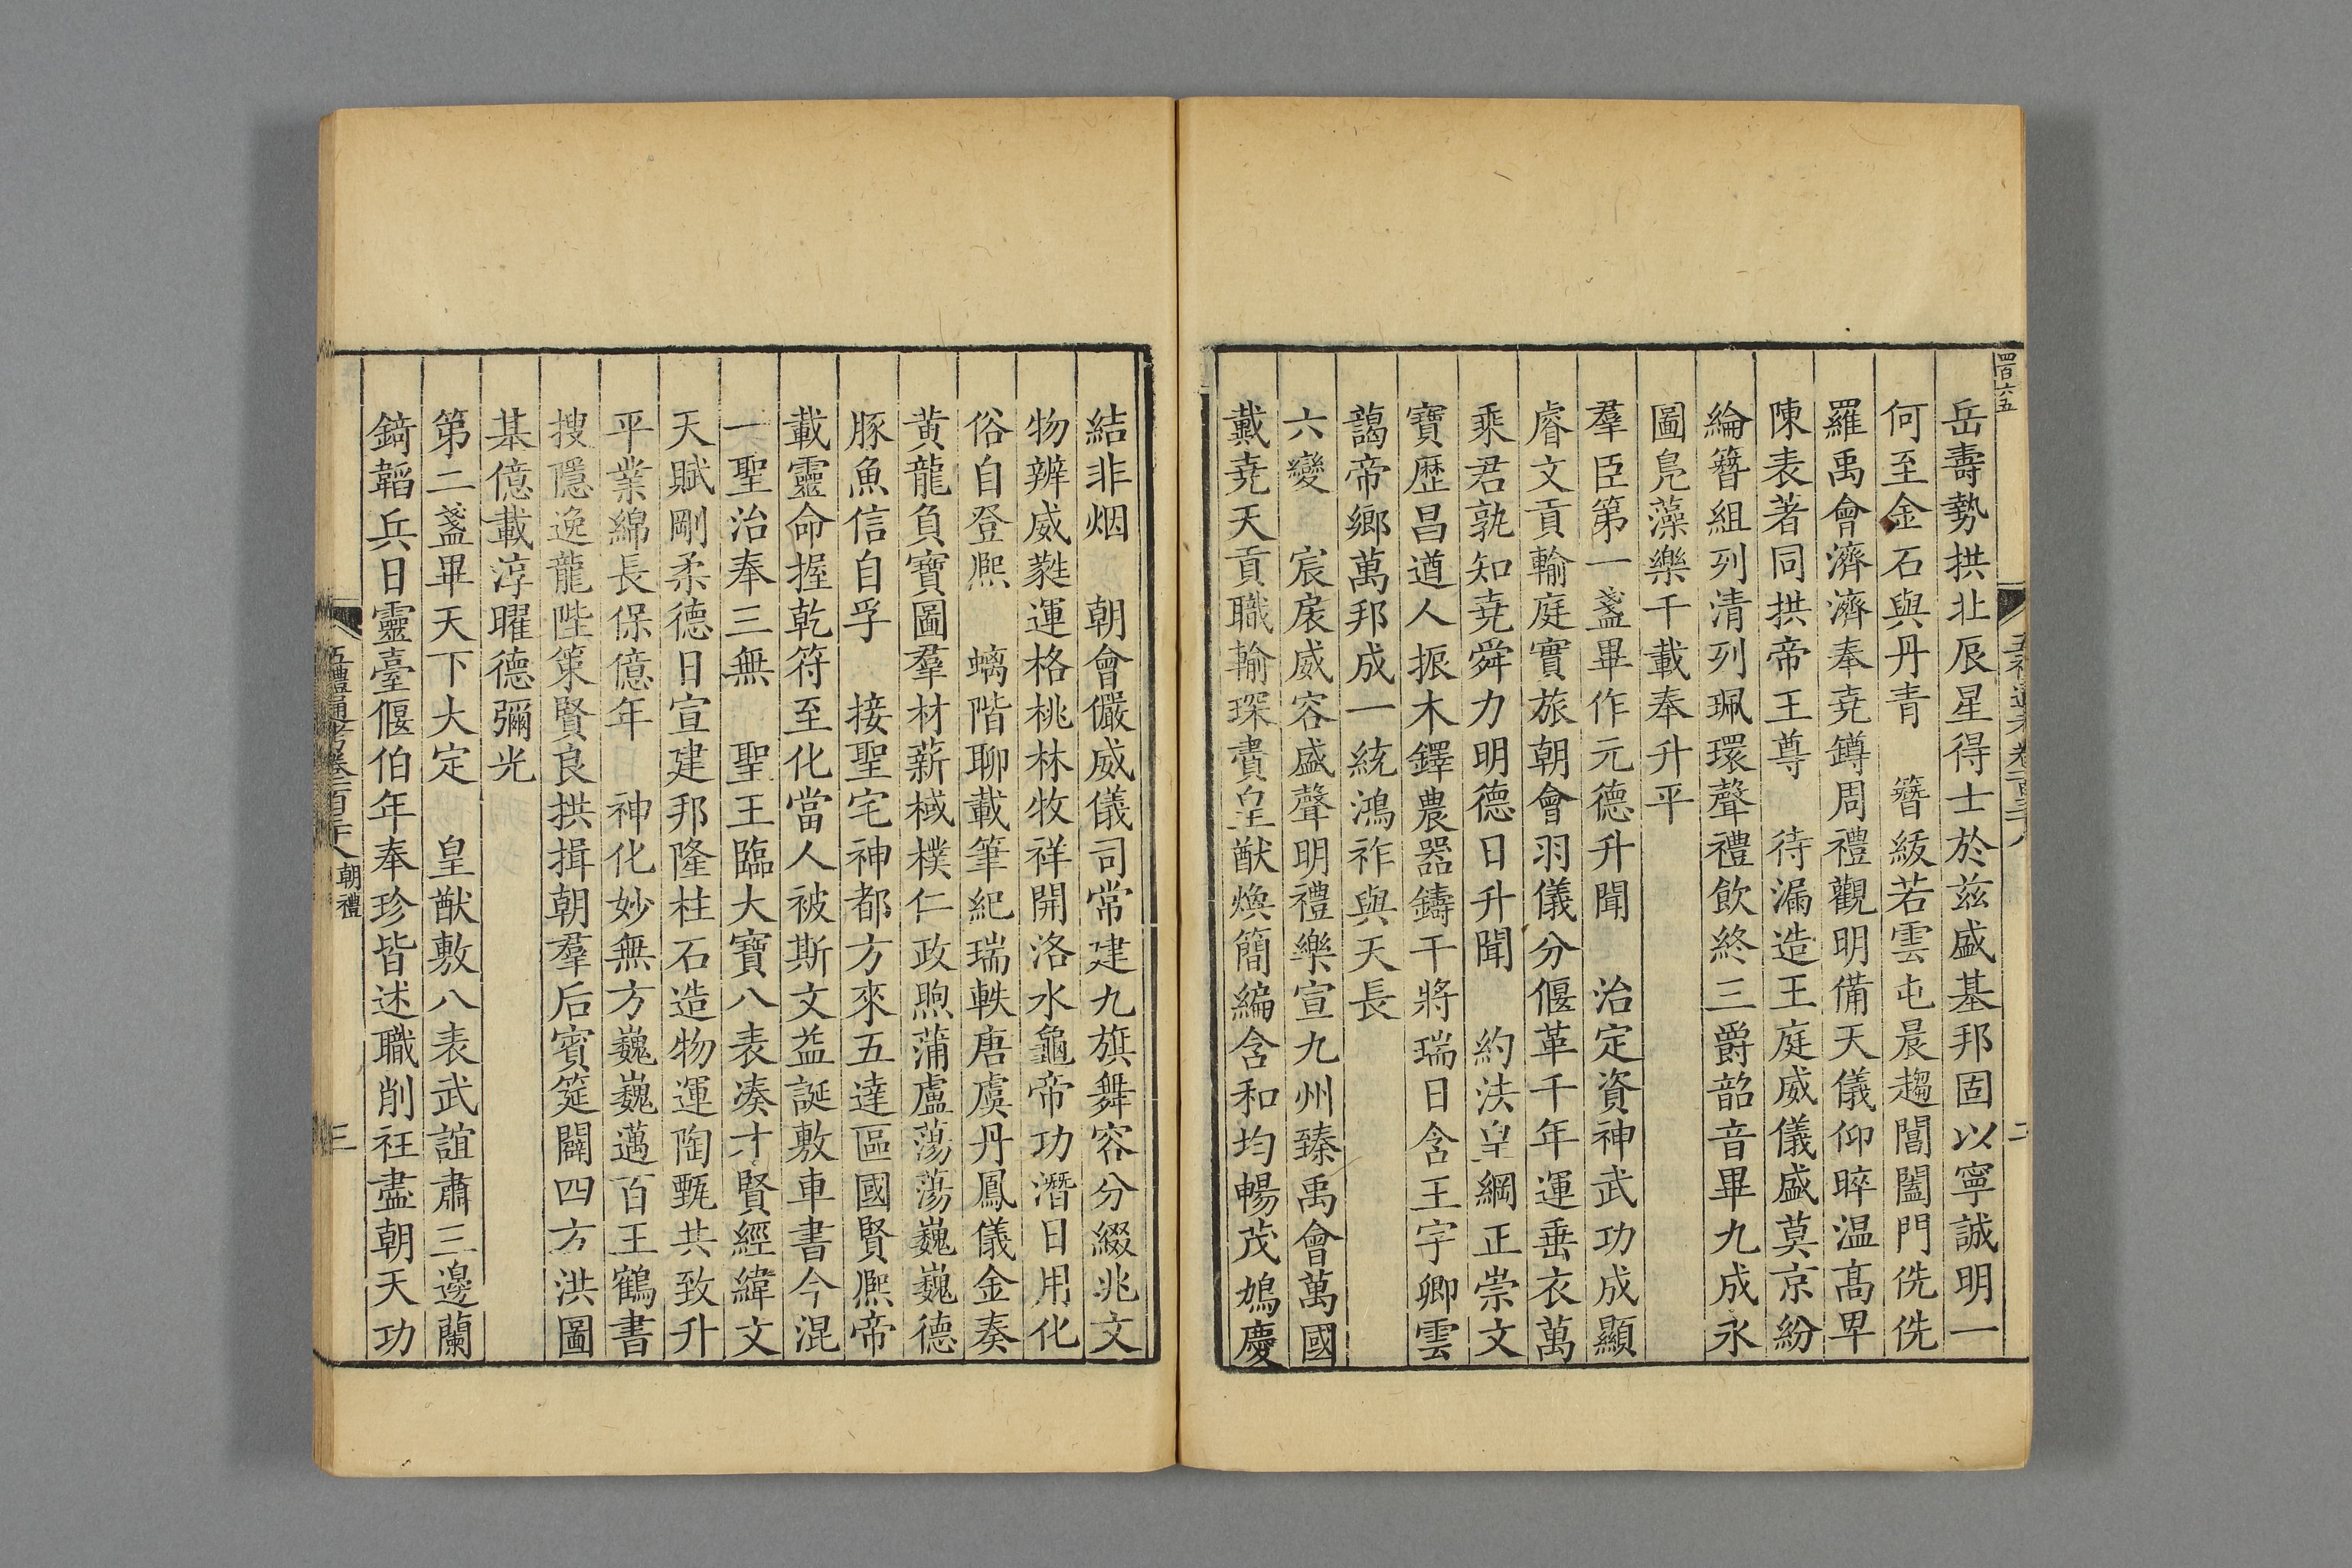 四百六五
岳壽勢拱北辰星得士於兹盛基邦固以寧誠明一
何至金石與丹青　簪紱若雲屯晨趨閶闔門侁侁
羅禹會濟濟奉堯罇周禮觀明備天儀仰睟温髙卑
陳表著同拱帝王尊　待漏造王庭威儀盛莫京紛
綸簪組列清列珮環聲禮飲終三爵韶音畢九成永
圖鳧藻樂千載奉升平
羣臣第一盞畢作元德升聞　治定資神武功成顯
睿文貢輸庭實旅朝會羽儀分偃革千年運垂衣萬
乘君孰知堯舜力明德日升聞　約法皇綱正崇文
寶歴昌遒人振木鐸農器鑄干將瑞日含王宇卿雲
藹帝鄉萬邦成一統鴻祚與天長
六變　宸扆威容盛聲明禮樂宣九州臻禹會萬國
戴堯天貢職輸琛賮皇猷煥簡編含和均暢茂鳩慶
結非烟　朝會儼威儀司常建九旗舞容分綴兆文
物辨威蕤運格桃林牧祥開洛水龜帝功潛日用化
俗自登熙　螭階聊載筆紀瑞軼唐虞丹鳳儀金奏
黄龍負寶圖羣材薪棫樸仁政煦蒲盧蕩蕩巍巍德
豚魚信自孚　接聖宅神都方來五達區國賢熈帝
載靈命握乾符至化當人被斯文益誕敷車書今混
一聖治奉三無　聖王臨大寶八表凑才賢經緯文
天賦剛柔德日宣建邦隆柱石造物運陶甄共致升
平業綿長保億年　神化妙無方巍巍邁百王鶴書
搜隱逸龍陛策賢良拱揖朝羣后賓筵闢四方洪圖
基億載淳曜德彌光
第二盞畢天下大定　皇猷敷八表武誼肅三邊蘭
錡韜兵日靈臺偃伯年奉珍皆述職削衽盡朝天功
朝禮
三